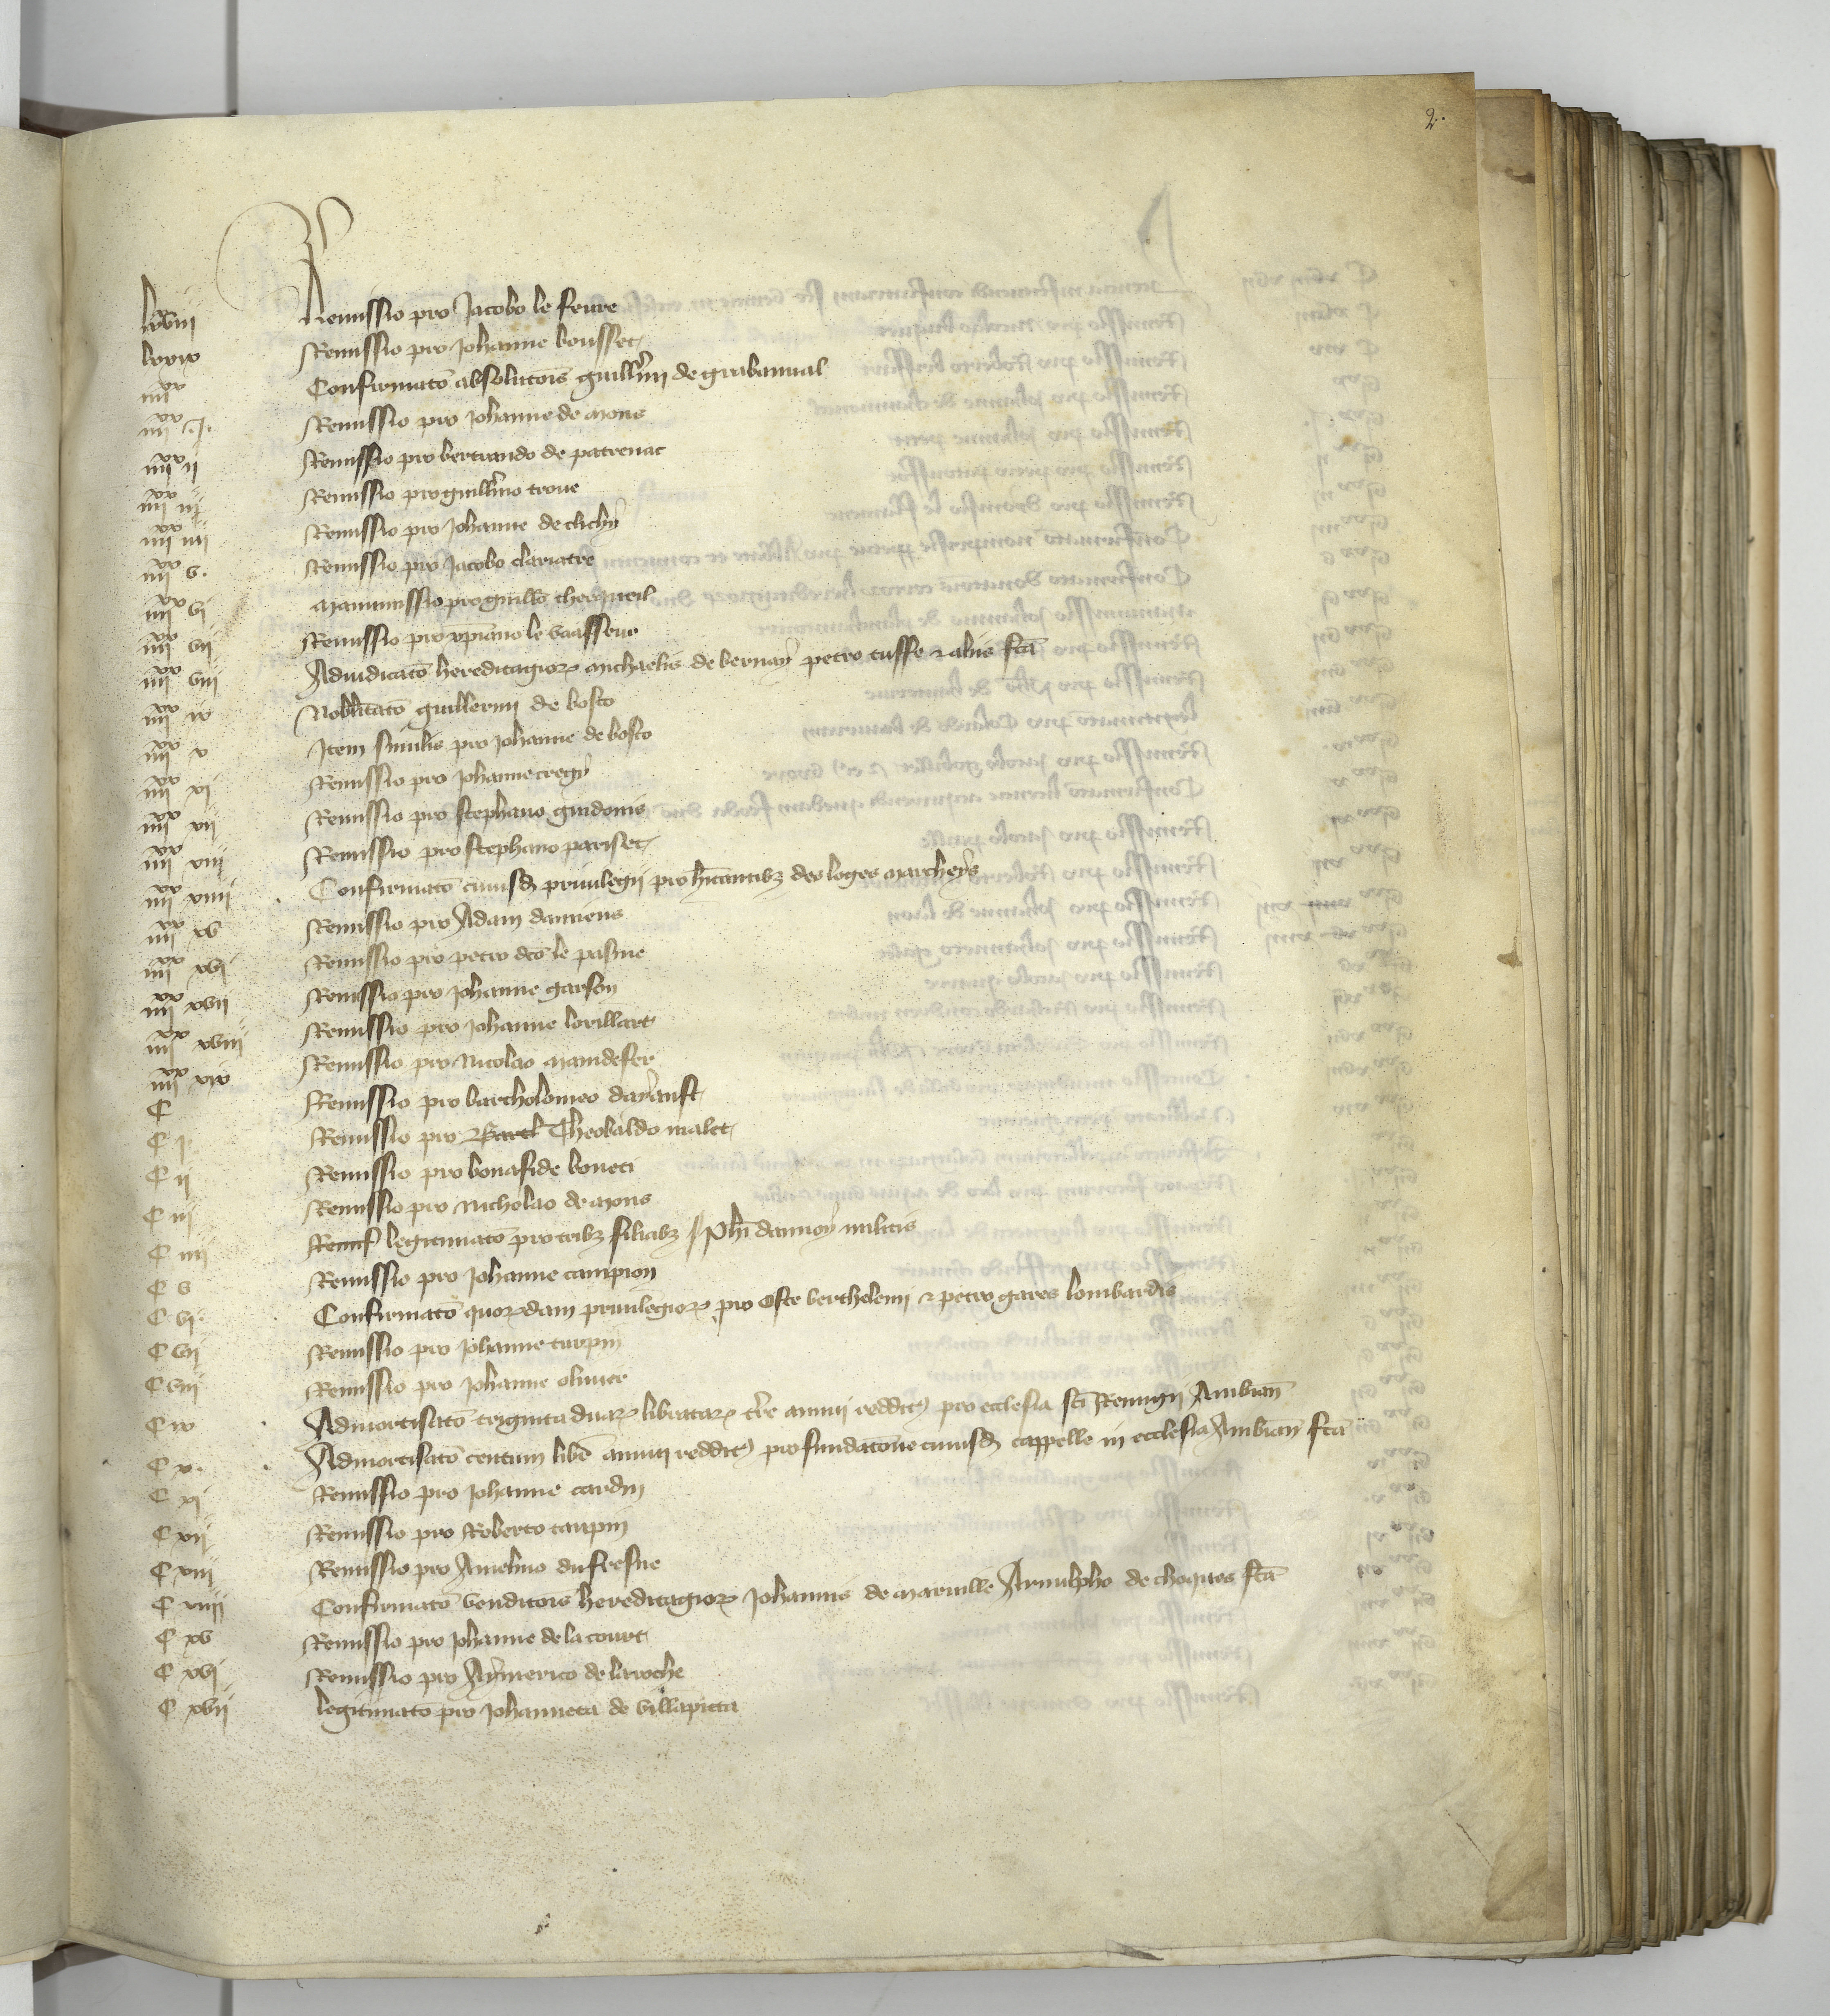 2.
lxxviii Remissio pro Jacobo le fevre
lxxix Remissio pro Johanne bousset
iiiixx Confirmato absolutois guillmi de grabanual
iiiixx i. Remissio pro Johanne de mons
iiiixx ii Remissio pro bertrando de patrenac
iiiixx iii Remissio pro guillmo troue
iiiixx iiii Remissio pro Johanne de clichy
iiiixx v. Remissio pro Jacobo clariatre
iiiixx vi Manumissio pro guillo
iiiixx vii Remissio pro xpiano le vasseur
iiiixx viii Adiudicato hereditagior michaelis de bernay petro tusse & aliis fca
iiiixx ix Nobilitato guillermi de bosco
iiiixx x Item similis pro Johanne de bosco
iiiixx xi Remissio pro Johanne tregy
iiiixx xii Remissio pro stephano guidonis
iiiixx xiii Remissio pro stephano pariset
iiiixx xiiii Confirmato cuiusd privilegii pro hitantibz des loges marcheys
iiiixx xv Remissio pro Adam damiens
iiiixx xvi Remissio pro petro dco le pasme
iiiixx xvii Remissio pro Johanne garson
iiiixx xviii Remissio pro Johanne lorillart
iiiixx xix Remissio pro Nicolao maindefer
C Remissio pro bartholomeo dayanst
C i. Remissio pro Bartl Theobaldo malet
C ii Remissio pro bonafide boneti
C iii Remissio pro Nicholao de mons
C iiii Remiss legitimato pro tribz filiabz Phi dannoy militis
C v Remissio pro Johanne campion
C vi. Confirmato quordam privilegior pro Oste berthelemi & petro gares lombardis
C vii Remissio pro Johanne turpin
C viii Remissio pro Johanne olivier
C ix Admortisato triginta duar libratar tre annui reddit pro ecclesia sci Remigii Ambian
C x. Admortisato centum libr annui reddit pro fundatone cuiusd cappelle in ecclesia Ambian fca
C xi Remissio pro Johanne cardin
C xii Remissio pro Roberto taupin
C xiii Remissio pro Amelino dufresne
C xiiii Confirmato venditois hereditagior Johannis de marville Arnulpho de choques fca
C xv Remissio pro Johanne de la court
C xvi Remissio pro Aymerico de la roche
C xvii legitimato pro Johanneta de villapicta